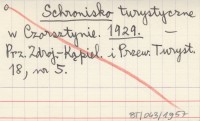 Schronisko turystyczne
w Czorsztynie. 1929. —
Prz. Zdroj.-Kąpiel. i Przew. Turyst.
18, nr 5.
BT/043/1957